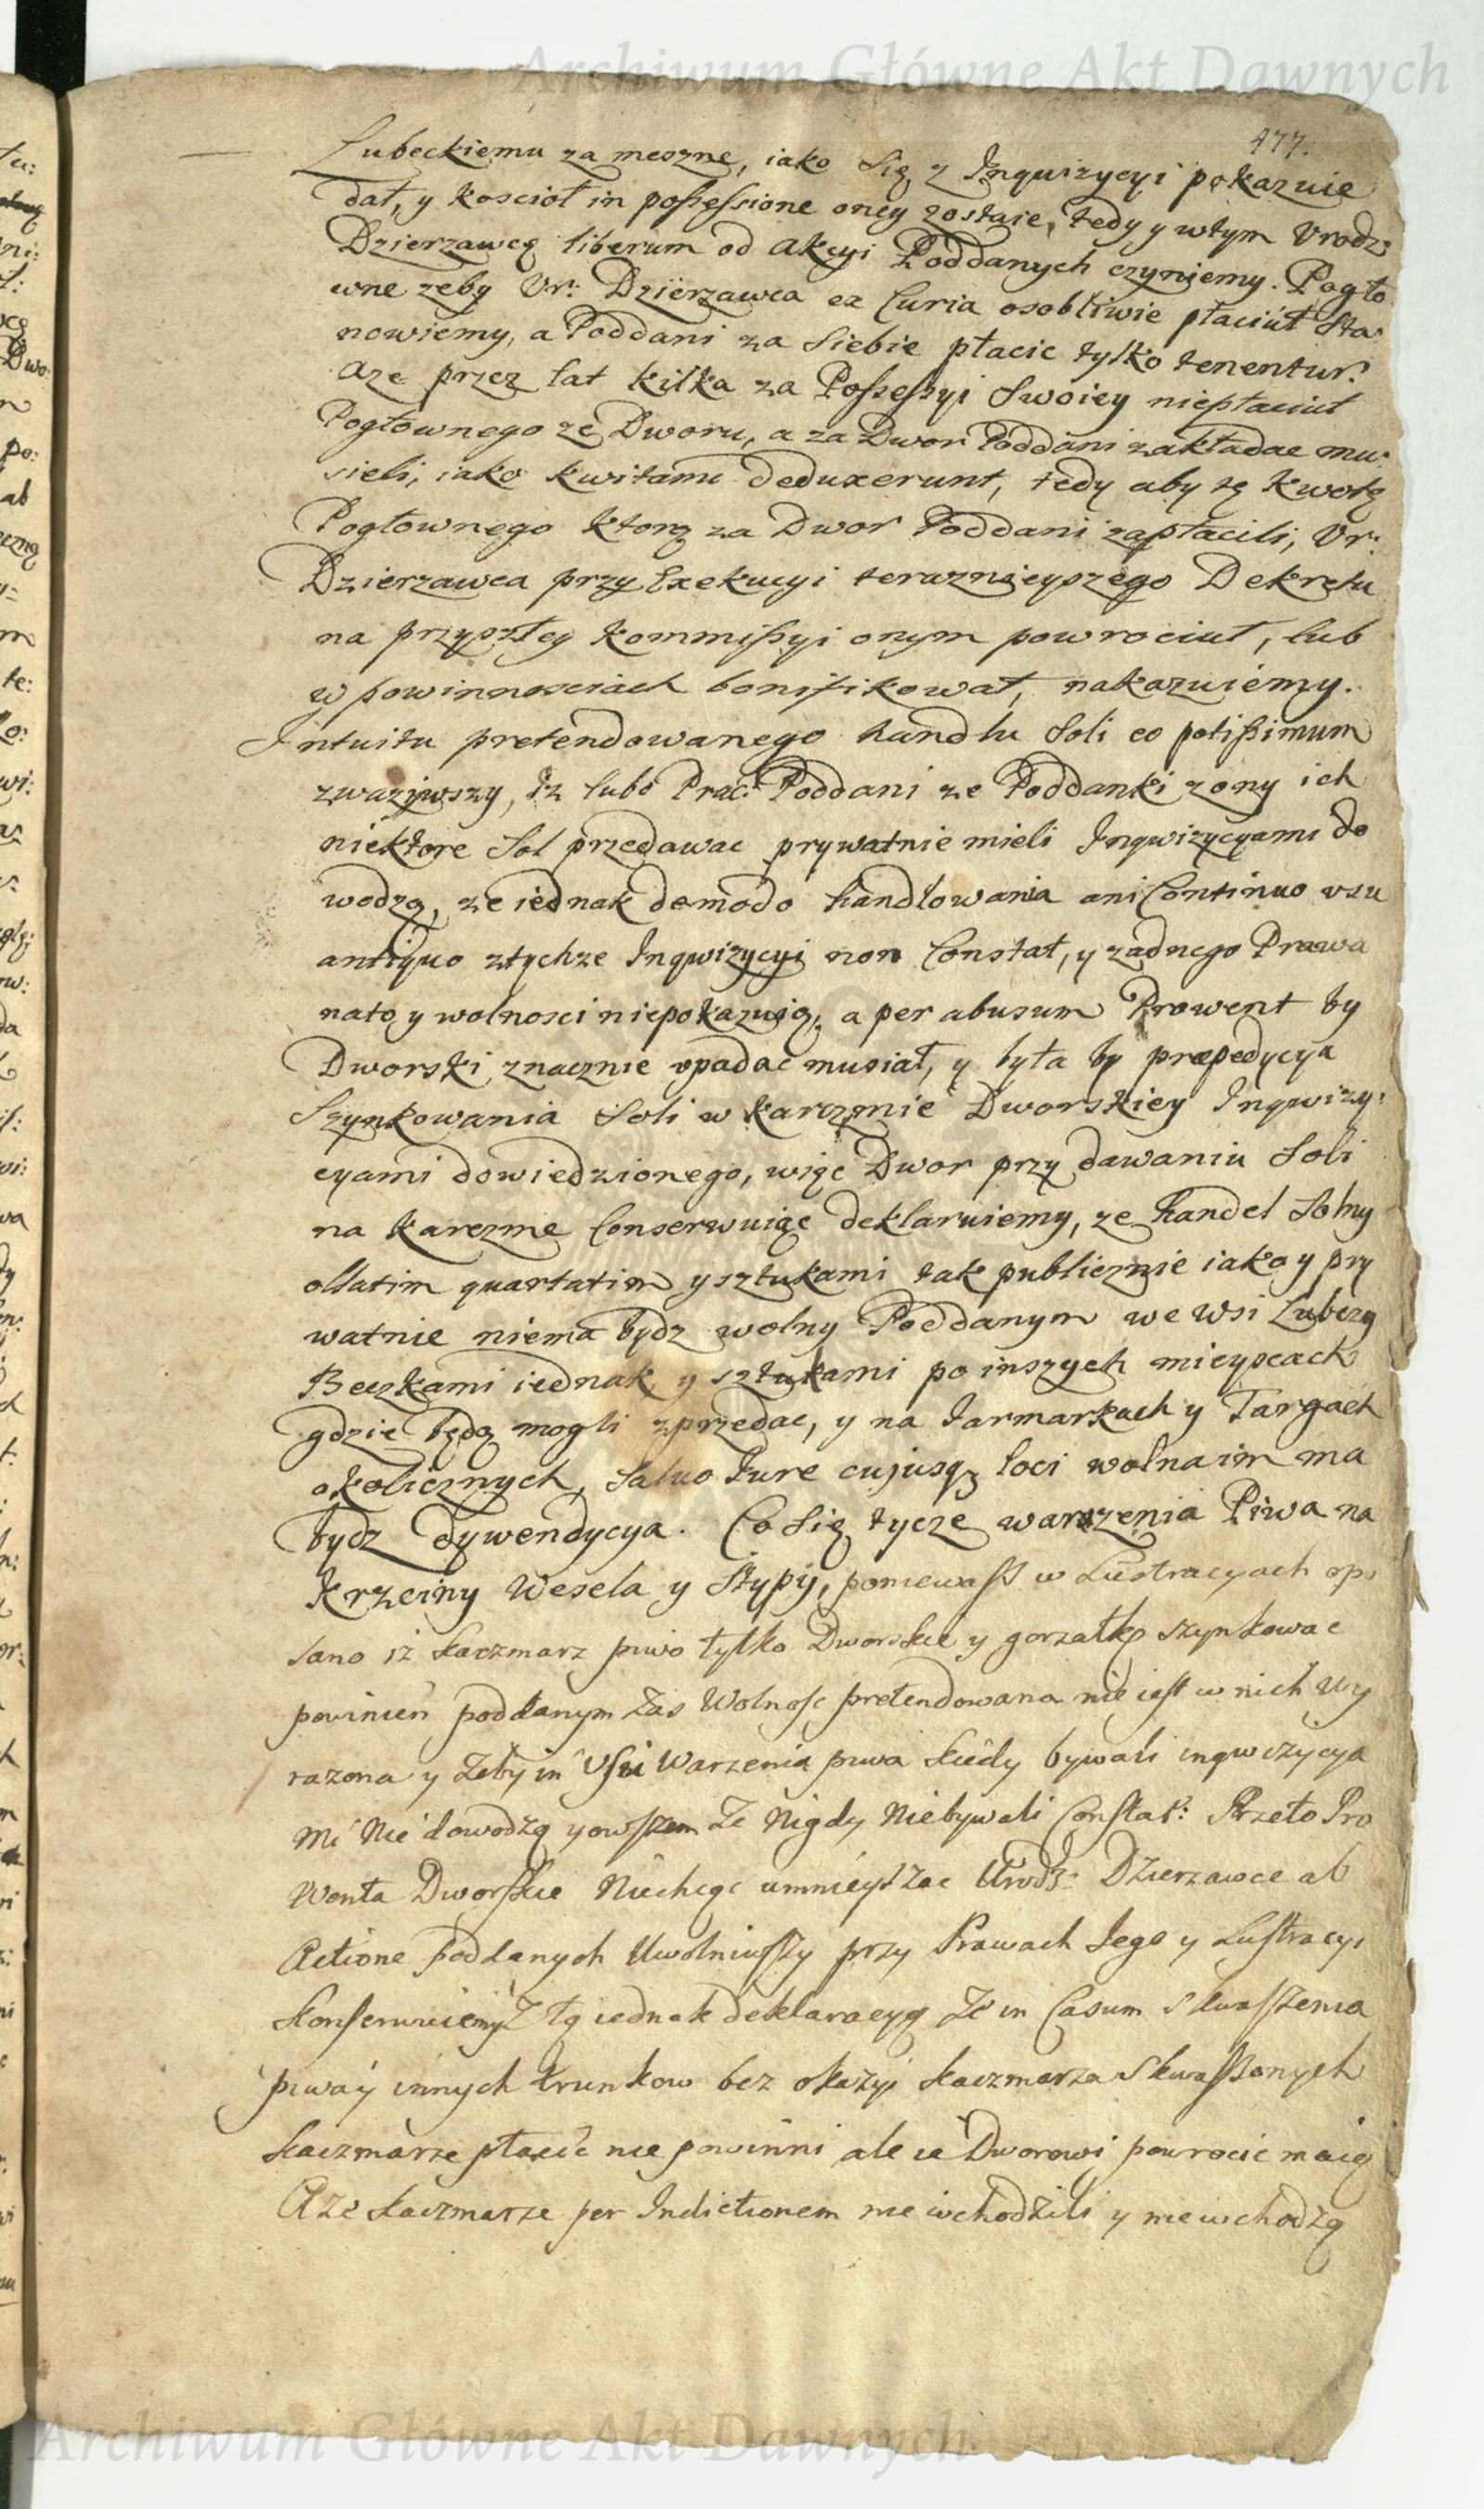 Archiwum Główne Akt Dawnych
477.
Lubeckiemu za meszne, iako się z Inqwizycyi pokazuie
dał, y kościoł in possessione oney zostaie, tedy y wtym Vrodz:
Dzierzawcę liberum od akcyi Poddanych czyniemy. Pogło
wne zeby Vr: Dzierzawca ex Curia osobliwie płaciuł sta:
nowiemy, a Poddani za siebie płacic tylko tenentur.
aze przez lat kilka za Possessyi swoiey niepłaciuł
Pogłownego ze Dworu, a za Dwor Poddani zakładac mu:
sieli, iako kwitami deduxerunt, tedy aby tę kwotę
Pogłownego ktorą za Dwor Poddani zapłacili, Vr:
Dzierzawca przy Exekucyi teraznieyszego Dekretu
na przyszłey kommissyi onym powrociuł, lub
w powinnosciach bonifikował, nakazuiemy.
Intuitu pretendowanego handlu Soli eo potissimum
zwazywszy, iz lubo Prac: Poddani ze Poddanki zony ich
niektore Sol przedawac prywatnie mieli Inqwizycyami do
wodzą, ze iednak de modo handlowania ani Continuo vsu
antiquo ztychze Inqwizycyi non Constat, y zadnego Prawa
nato y wolnosci niepokazuią, a per abusum Prowent by
Dworski znacznie vpadac musiał, y była by præpedycya
Szynkowania Soli w karczmie Dworskiey Inqwizy:
cyami dowiedzionego, więc Dwor przy dawaniu Soli
na karczmę Conserwuiąc deklaruiemy, ze handel Solny
ollatim quartatim y sztukami tak publicznie iako y pry
watnie niema bydz wolny Poddanym we wsi Luberzy
Beczkami iednak y sztukami po inszych mieyscach
gdzie będą mogli zprzedac, y na Jarmarkach y Targach
okolicznych, salvo Jure cujusq; loci wolna im ma
bydz dywendycya. Co się tycze warzenia Piwa na
krzciny Wesela y Stypy, poniewasz w Lustracyach opi
sano iz kaczmarz piwo tylko Dworskie y gorzałkę szynkowac
powinien poddanym zas Wolnosc pretendowana nie iest w nich Wy
razona y zeby in Vsu Warzenia piwa kiedy bywali inqwizycya
mi Nie dowodzą y owszem ze Nigdy Niebywali Constat: Przeto Pro
Wenta Dworskie Niechcąc umnieyszac Urodz: Dzierzawce ab
Actione poddanych Uwolniuszy przy Prawach Jego y Lustracyi
konserwuiemy Z tą iednak deklaracyą Ze in Casum skwaszenia
piwa y innych trunkow bez okazyi kaczmarza skwaszonych
kaczmarze płacic nie powinni ale ie Dworowi powrocic maią
A Ze kaczmarze per Indictionem nie wchodzili y nie wchodzą
Archiwum Główne Akt Dawnych